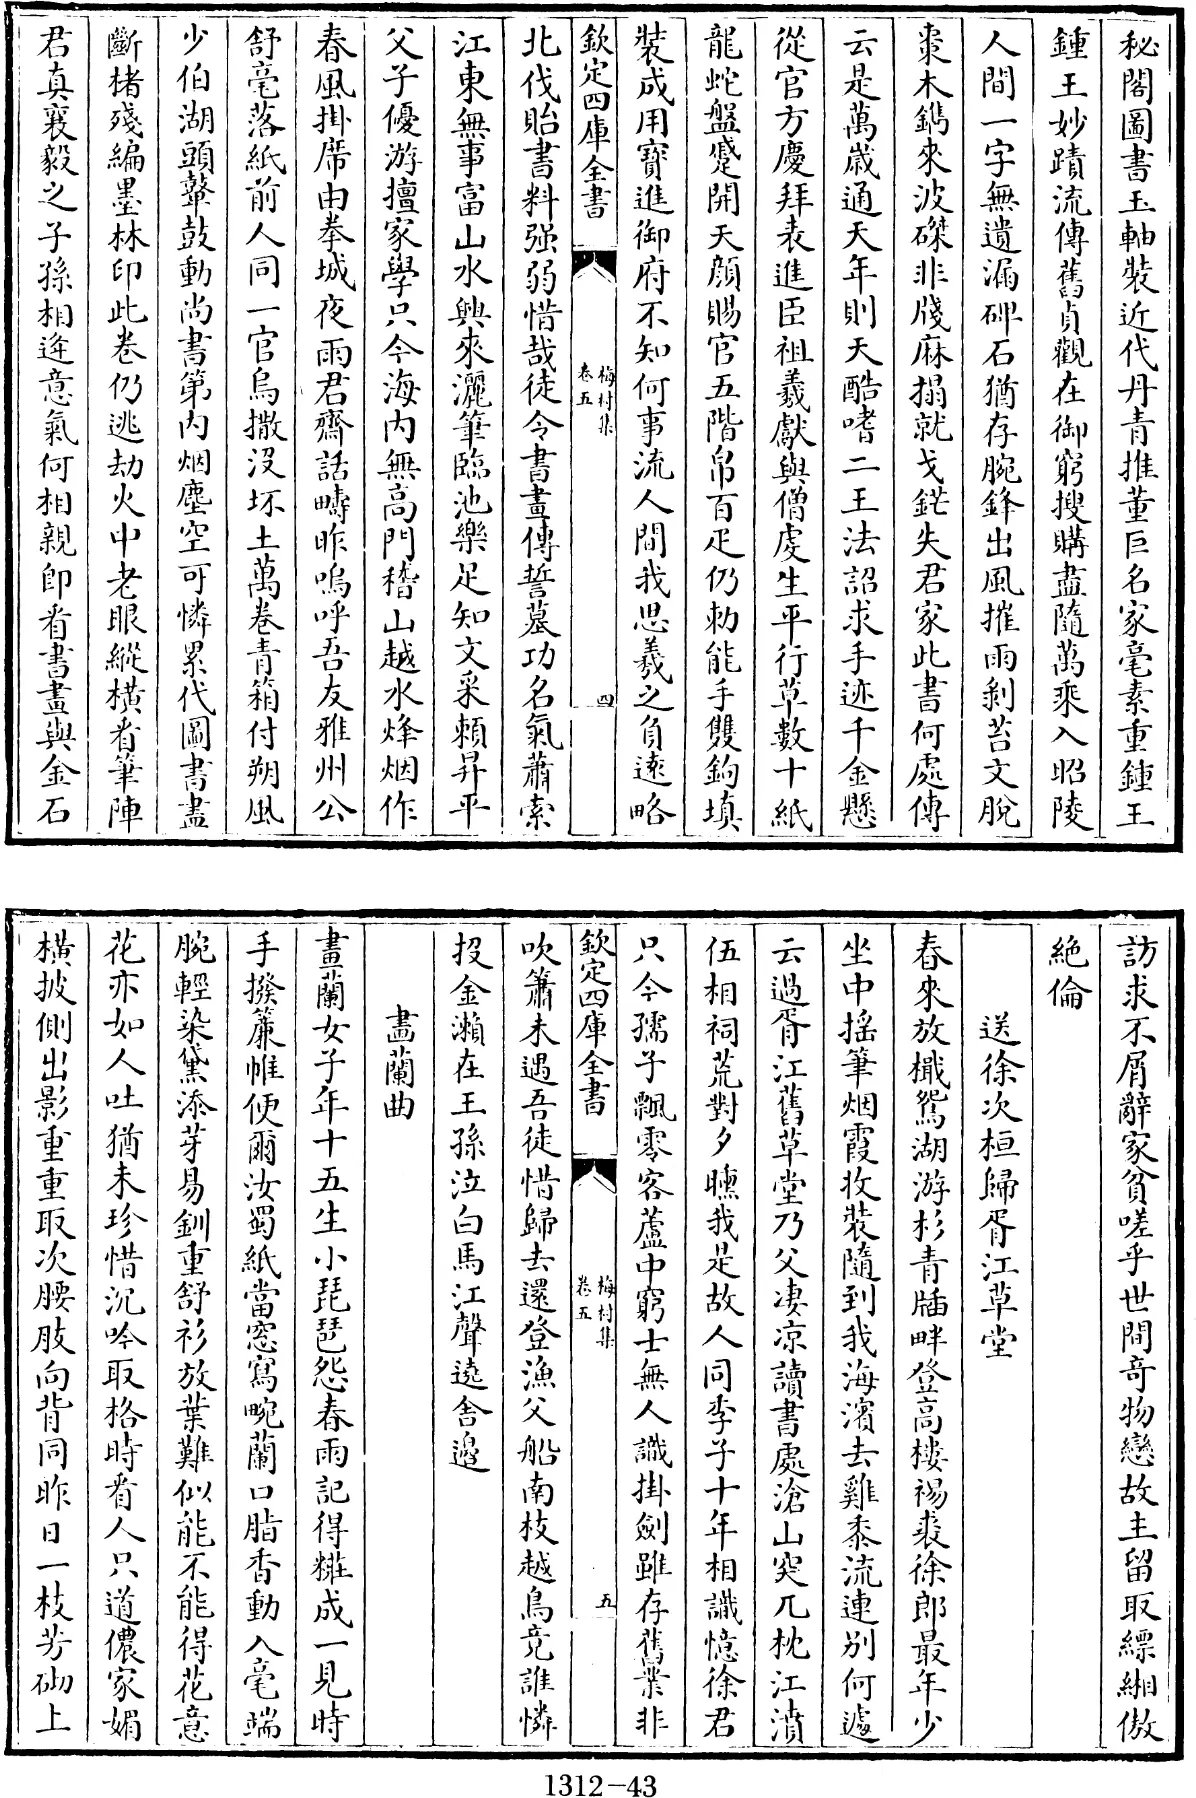 秘閣圖書玉軸裝近代丹青推董巨名家毫素重鍾王
鍾王妙蹟流傳舊貞觀在御窮搜購盡隨萬乘入昭陵
人間一字無遺漏碑石猶存腕鋒出風摧雨剝苔文脫
棗木鐫來波磔非牋麻搨就戈鋩失君家此書何處傳
云是萬歲通天年則天酷嗜二王法詔求手迹千金懸
從官方慶拜表進臣祖羲獻與僧虔生平行草數十紙
龍蛇盤蹙開天顔賜官五階帛百疋仍勅能手雙鉤填
裝成用寳進御府不知何事流人間我思羲之負遠略
欽定四庫全書
梅村集
卷五
四
北伐貽書料强弱惜哉徒令書畫傳誓墓功名氣蕭索
江東無事富山水興來灑筆臨池樂足知文采頼昇平
父子優游擅家學只今海内無高門稽山越水烽烟作
春風掛席由拳城夜雨君齋話疇昨嗚呼吾友雅州公
舒毫落紙前人同一官烏撒沒坏土萬卷青箱付朔風
少伯湖頭鼙鼓動尚書第内烟塵空可憐累代圖書盡
斷楮殘編墨林印此卷仍逃劫火中老眼縱横看筆陣
君真襄毅之子孫相逢意氣何相親即看書畫與金石
訪求不屑辭家貧嗟乎世間奇物戀故主留取縹緗傲
絶倫
送徐次桓歸胥江草堂
春來放櫂鴛湖游杉青牐畔登高樓裼裘徐郎最年少
坐中揺筆烟霞收裝隨到我海濱去雞黍流連别何遽
云過胥江舊草堂乃父凄凉讀書處滄山突兀枕江濆
伍相祠荒對夕曛我是故人同季子十年相識憶徐君
只今孺子飄零客蘆中窮士無人識掛劍雖存舊業非
欽定四庫全書
梅村集
卷五
五
吹簫未遇吾徒惜歸去還登漁父船南枝越鳥竟誰憐
投金瀨在王孫泣白馬江聲遶舍邉
畫蘭曲
畫蘭女子年十五生小琵琶怨春雨記得糚成一見時
手撥簾帷便爾汝蜀紙當窓寫畹蘭口脂香動入毫端
腕輕染黛添芽易釧重舒衫放葉難似能不能得花意
花亦如人吐猶未珍惜沉吟取格時看人只道儂家媚
横披側出影重重取次腰肢向背同昨日一枝芳砌上
1312-43